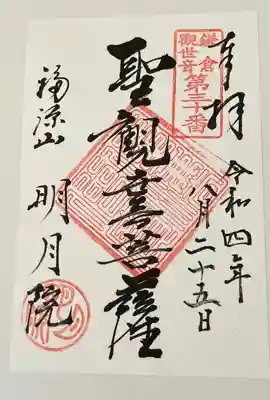 奉拝
令和四年
八月二十五日
鎌倉
觀世音
第三十番
聖觀音菩薩
福源山
明月院